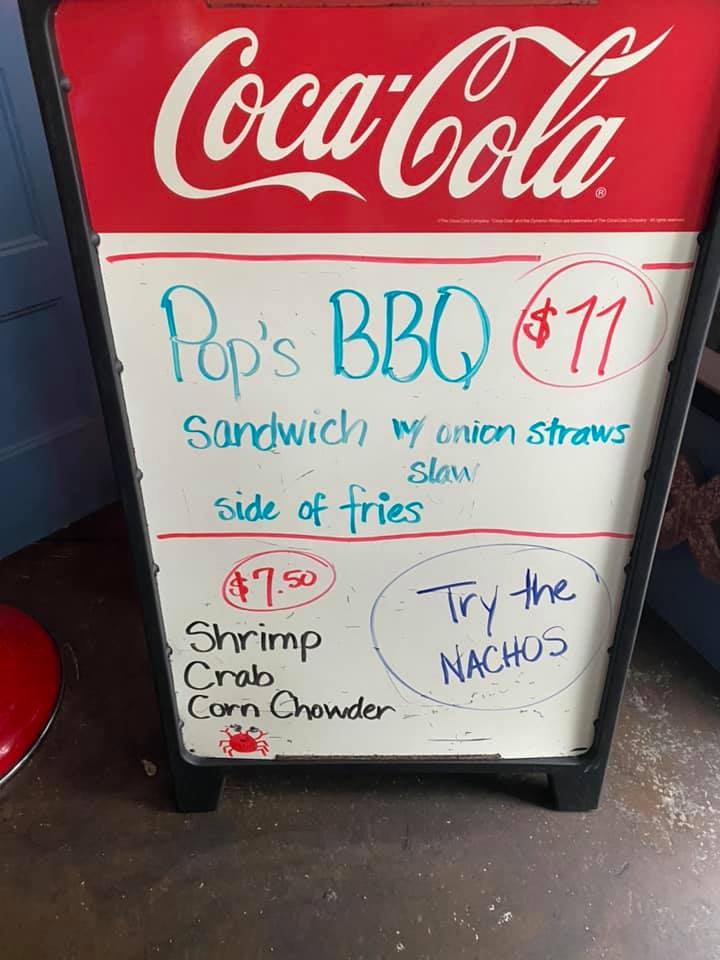 Coca-Cola®
Pop's BBQ $11
Sandwich w/ onion straws
slaw
side of fries
$7.50
Shrimp
Crab
Corn Chowder
Try the
NACHOS